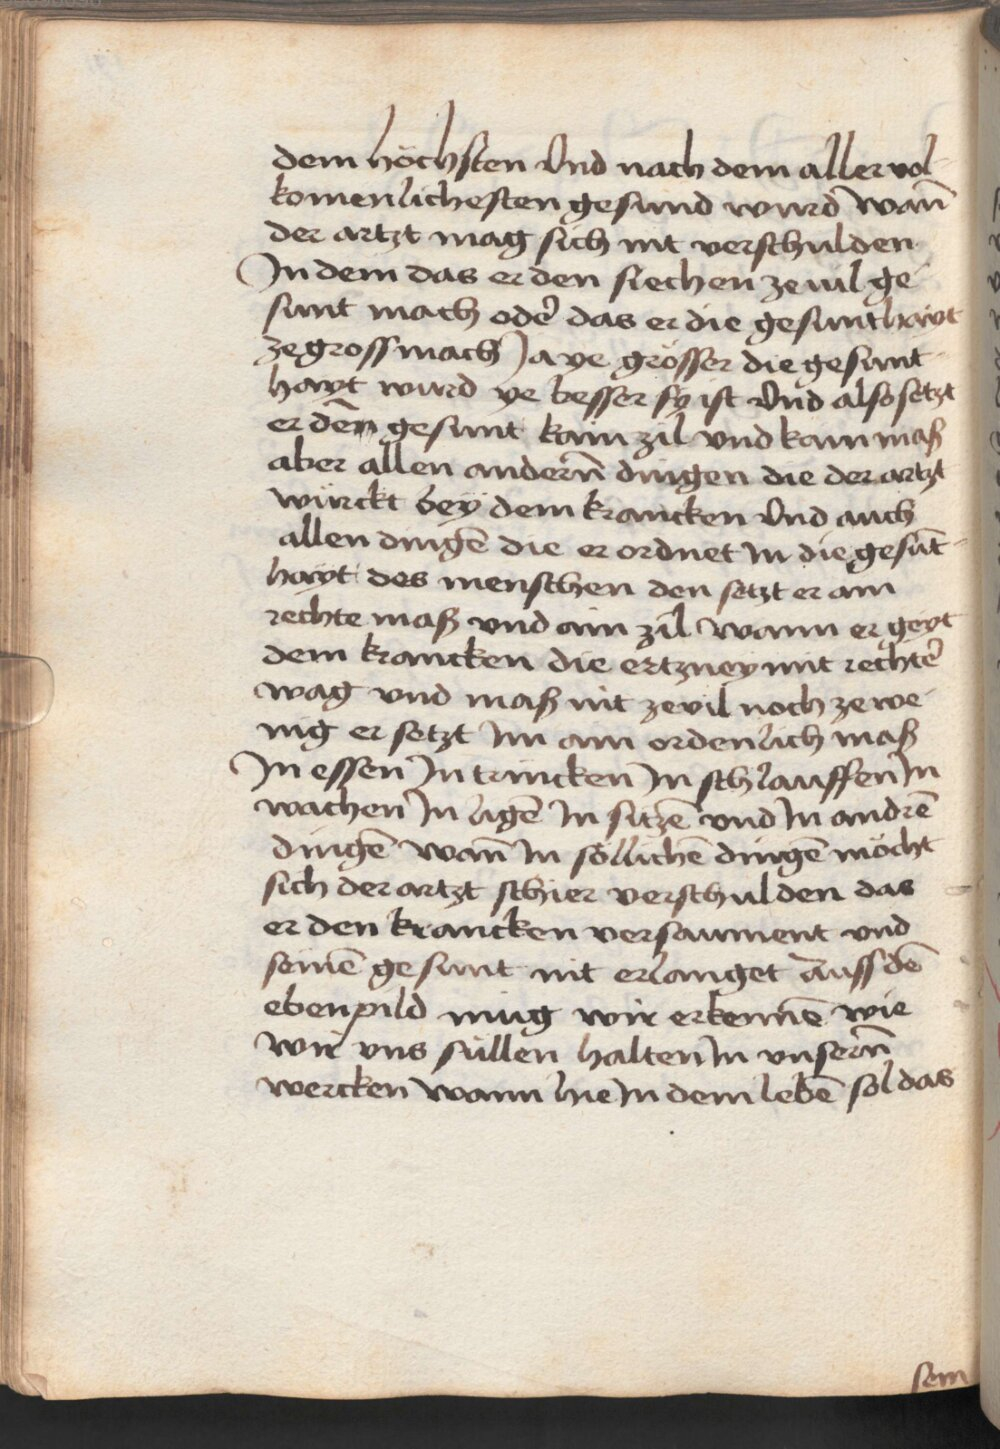 dem höchsten Vnd nach dem aller vol-
komenlichesten gesund wurd wañ
der artzt mag sich nit verschulden
In dem das er den siechen ze vil ge-
sunt mach oder̾ das er die gesunthayt
ze gross mach Ja ye grösser die gesunt-
hayt wurd ye besser sy ist Vnd also setzt
er dem gesunt kain zil vnd kain maß
aber allen anderñ dingen die der artzt
würckt bey dem krancken Vnd auch
allen dingē die er ordnet in die gesūt-
hayt des menschen den setzt er ain
rechte maß vnd ain zil wann er geyt
dem krancken die ertzney mit rechter̾
wag vnd maß nit ze vil noch ze we-
nig er setzt im ain ordenlich maß
In essen In trincken In schlauffen In
wachen In ligē In sitzē vnd In andrē
dingē wañ In söllichē dingē möcht
sich der artzt schier verschulden das
er den krancken versaument vnd
seinē gesunt nit erlanget Auss dē
ebenpild mug wir erkennē wie
wir vns süllen halten In vnserñ
wercken wann hie In dem lebē sol das
sein